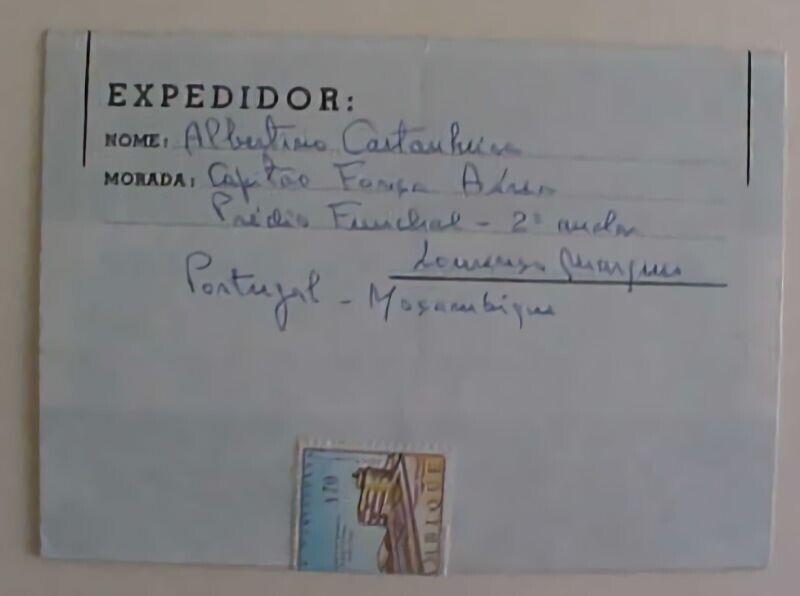 EXPEDIDOR:
NOME: Albertino Castanheira
MORADA: Capitão Força Aérea
Prédio Funchal - 2º andar
Lourenço Marques
Portugal - Moçambique
1$70